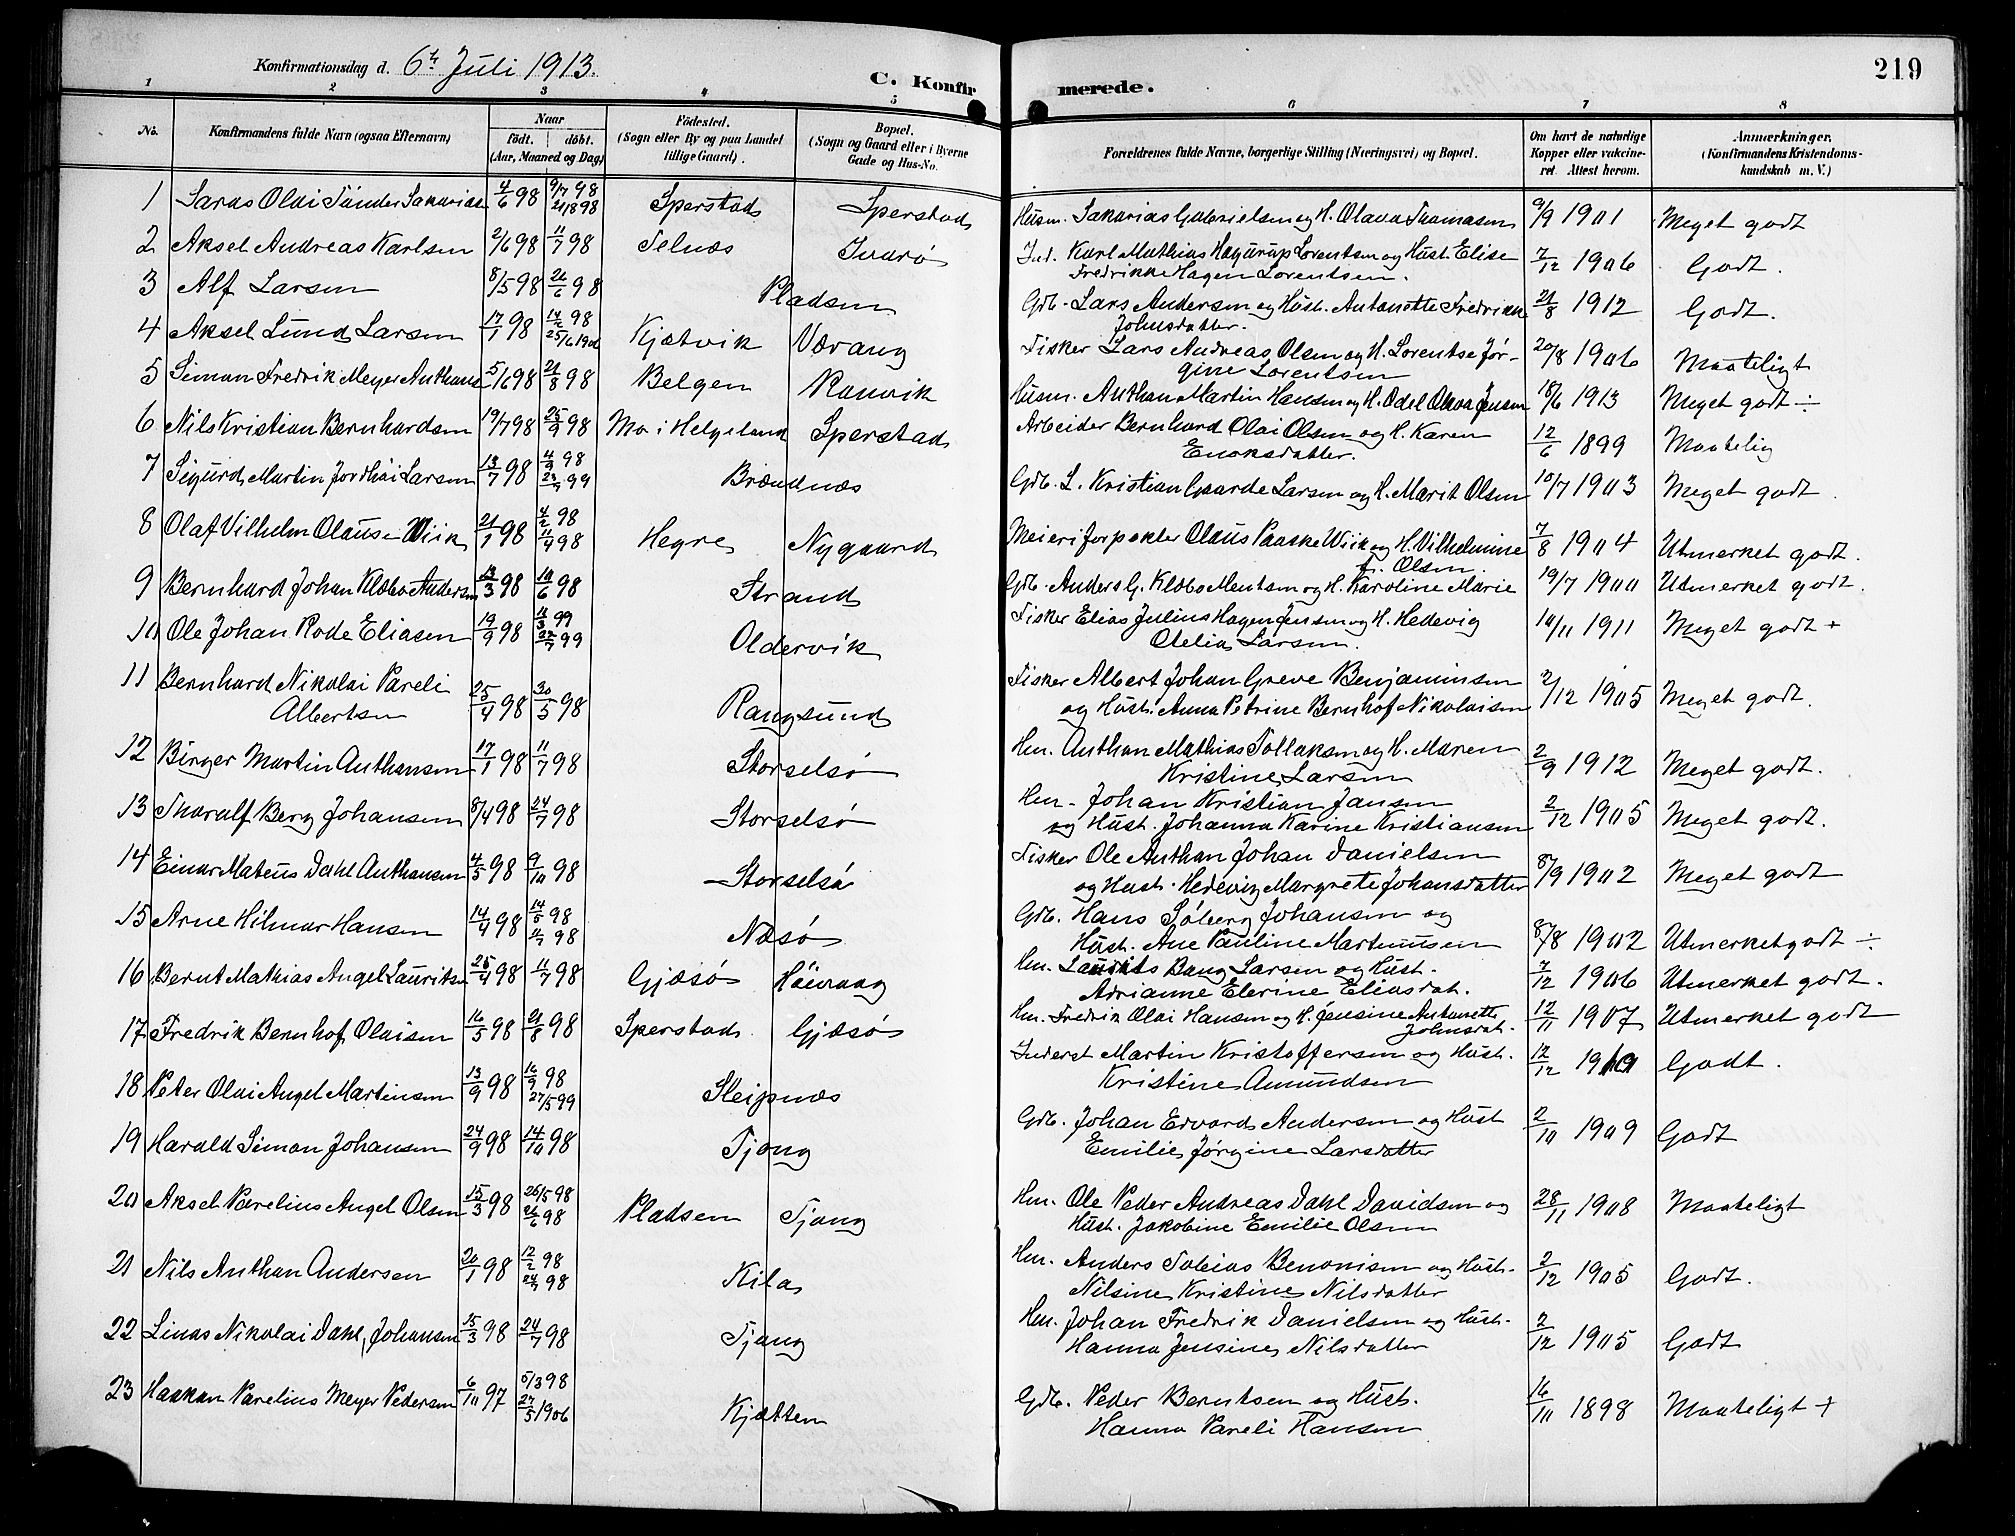 219
Konfirmationsdag d. 6te Juli 1913.
C. Konfir merede.
1 2 3 4 5 6 7 8
No. Konfirmandens fulde Navn (ogsaa Efternavn) Naar født. døbt. (Aar, Maaned og Dag) Fødested. (Sogn eller By og paa Landet tillige Gaard). Bopæl. (Sogn og Gaard eller i Byerne Gade og Hus-No. Forældrenes fulde Navne, borgerlige Stilling (Næringsvei) og Bopæl. Om havt de naturlige Kopper eller vakcineret. Attest herom. Anmærkninger, (Konfirmandens Kristendomskundskab m. V.)
1 Olai Tønder 4/6 98 9/7 98 21/8 98 Sperstad Sperstad Husm. Sakarias Gabrielsen og H. Olava Thomasen 9/9 1901 Meget godt
2 Aksel Andreas Karlsen 2/6 98 11/7 98 Selnæs Ind. Karl Mathias Lorentsen og Hust. Elise
Fredrikke Hagen Lorentsen. 2/12 1906 Godt.
3 Alf Larsen 8/5 98 26/6 98 Pladsen Gdb. Lars Andersen og Hust. Antonette Fredrikke
Johnsdatter. 21/8 1912 Godt.
4 Aksel Lund Larsen 17/1 98 14/2 98 25/6 1900 Kjætvik Værang Fisker Lars Andreas Olsen og H. Lorentse Jør-
gine Lorentsen 20/8 1906 Maateligt
5 Simon Fredrik Meyer Anthons 5/6 98 21/8 98 Belgen Ranvik Husm. Anthon Martin Hansen og H. Odel Olava Jensen 18/6 1913 Meget godt ÷
6 Nils Kristian Bernhardsen 19/7 98 25/9 98 Mo i Helgeland Sperstad Arbeider Bernhard Olai Olsen og H. Karen
Enoksdatter. 12/6 1899 Maatelig
7 Sigurd Martin Larsen 13/7 98 4/9 98 23/7 99 Brændnæs Gdb. L. Kristian Gaarde Larsen og H. Marit Olsen 10/7 1903 Meget godt
8 Olaf Vilhelm Olausen Wiik 21/1 98 4/2 98 11/4 98 Hegre Nygaard Meieriforpakter Olaus Paaske Wiik og H. Vilhelmine
f. Olsen. 7/8 1904 Utmerket godt.
9 Bernhard Johan Klæbo Andersen 13/3 98 19/6 98 Strand Gdb. Anders G. Klæbo Mentsen og H. Karoline Marie 19/7 1900 Utmerket godt.
10 Ole Johan Rode Eliasen 19/9 98 11/3 99 99 Oldervik Fisker Elias Julius Hagen Jensen og H. Hedevig
Otelia Larsen. 14/11 1911 Meget godt +
11 Bernhard Nikolai Pareli
Albertsen 25/4 98 30/5 98 Rangsund Fisker Albert Johan Greve Benjaminsen
og Hust. Anna Petrine Bernhof Nikolaisen 2/12 1905 Meget godt.
12 Birger Martin Anthonsen 17/1 98 11/7 98 Storselsø Hm. Anthon Mathias Tollaksen og H. Maren
Kristine Larsen 2/9 1912 Meget godt.
13 Thoralf Berg Johansen 8/4 98 24/7 98 Storselsø Hm. Johan Kristian Jansen
og Hust. Johanna Karine Kristiansen 2/12 1905 Meget godt.
14 Einar Mateus Dahl Anthonsen 4/5 98 9/10 98 Storselsø Fisker Ole Anthon Johan Danielsen
og Hust. Hedevig Margrete Johansdatter 8/9 1902 Meget godt
15 Arne Hilmar Hansen 14/4 98 14/5 98 98 Næsø Gdb. Hans Søberg Johansen og
Hust. Ane Pauline Martinusen 8/8 1902 Utmerket godt ÷
16 Bernt Mathias Angel Lauritsen 25/4 98 11/7 98 Gjæsø Høivaag Hm. Laurits Bang Larsen og Hust.
Adrianne Elerine Eliasdat. 7/12 1906 Utmerket godt.
17 Fredrik Bernhof Olaisen 16/5 98 21/8 98 Sperstad Gjæsø Hm. Fredrik Olai Hansen og H. Jensine Antonette
Johnsdat. 12/11 1907 Utmerket godt
18 Peter Olai Angel Martinsen 13/9 98 16/9 98 27/5 99 Sleipnæs Inderst Martin Kristoffersen og Hust.
Kristine Amundsen 12/12 1910 Godt.
19 Harald Simon Johansen 24/9 98 14/10 98 Tjong Gdb. Johan Edvard Andersen og Hust
Emilie Jørgine Larsdatter 2/10 1909 Godt
20 Aksel Parelius Angel Olsen 15/3 98 26/5 98 26/6 98 Pladsen Tjong Hm. Ole Peder Andreas Dahl Davidsen og
Hust. Jakobine Emilie Olsen 28/11 1908 Maateligt
21 Nils Anthon Andersen 20/1 98 12/2 98 24/7 98 Kila Hm. Anders Tobias Benonisen og Hust.
Nilsine Kristine Nilsdatter 2/12 1905 Godt.
22 Linas Nikolai Dahl Johansen 15/3 98 24/7 98 Tjong Hm. Johan Fredrik Danielsen og Hust.
Hanna Jensine Nilsdatter 2/12 1905 Godt
23 Haakon Parelius Meyer Pedersen 6/10 97 5/3 98 27/5 1906 Kjætten Gdb. Peder Berntsen og Hust.
Hanna Pareli Hansen 16/10 1898 Maateligt +